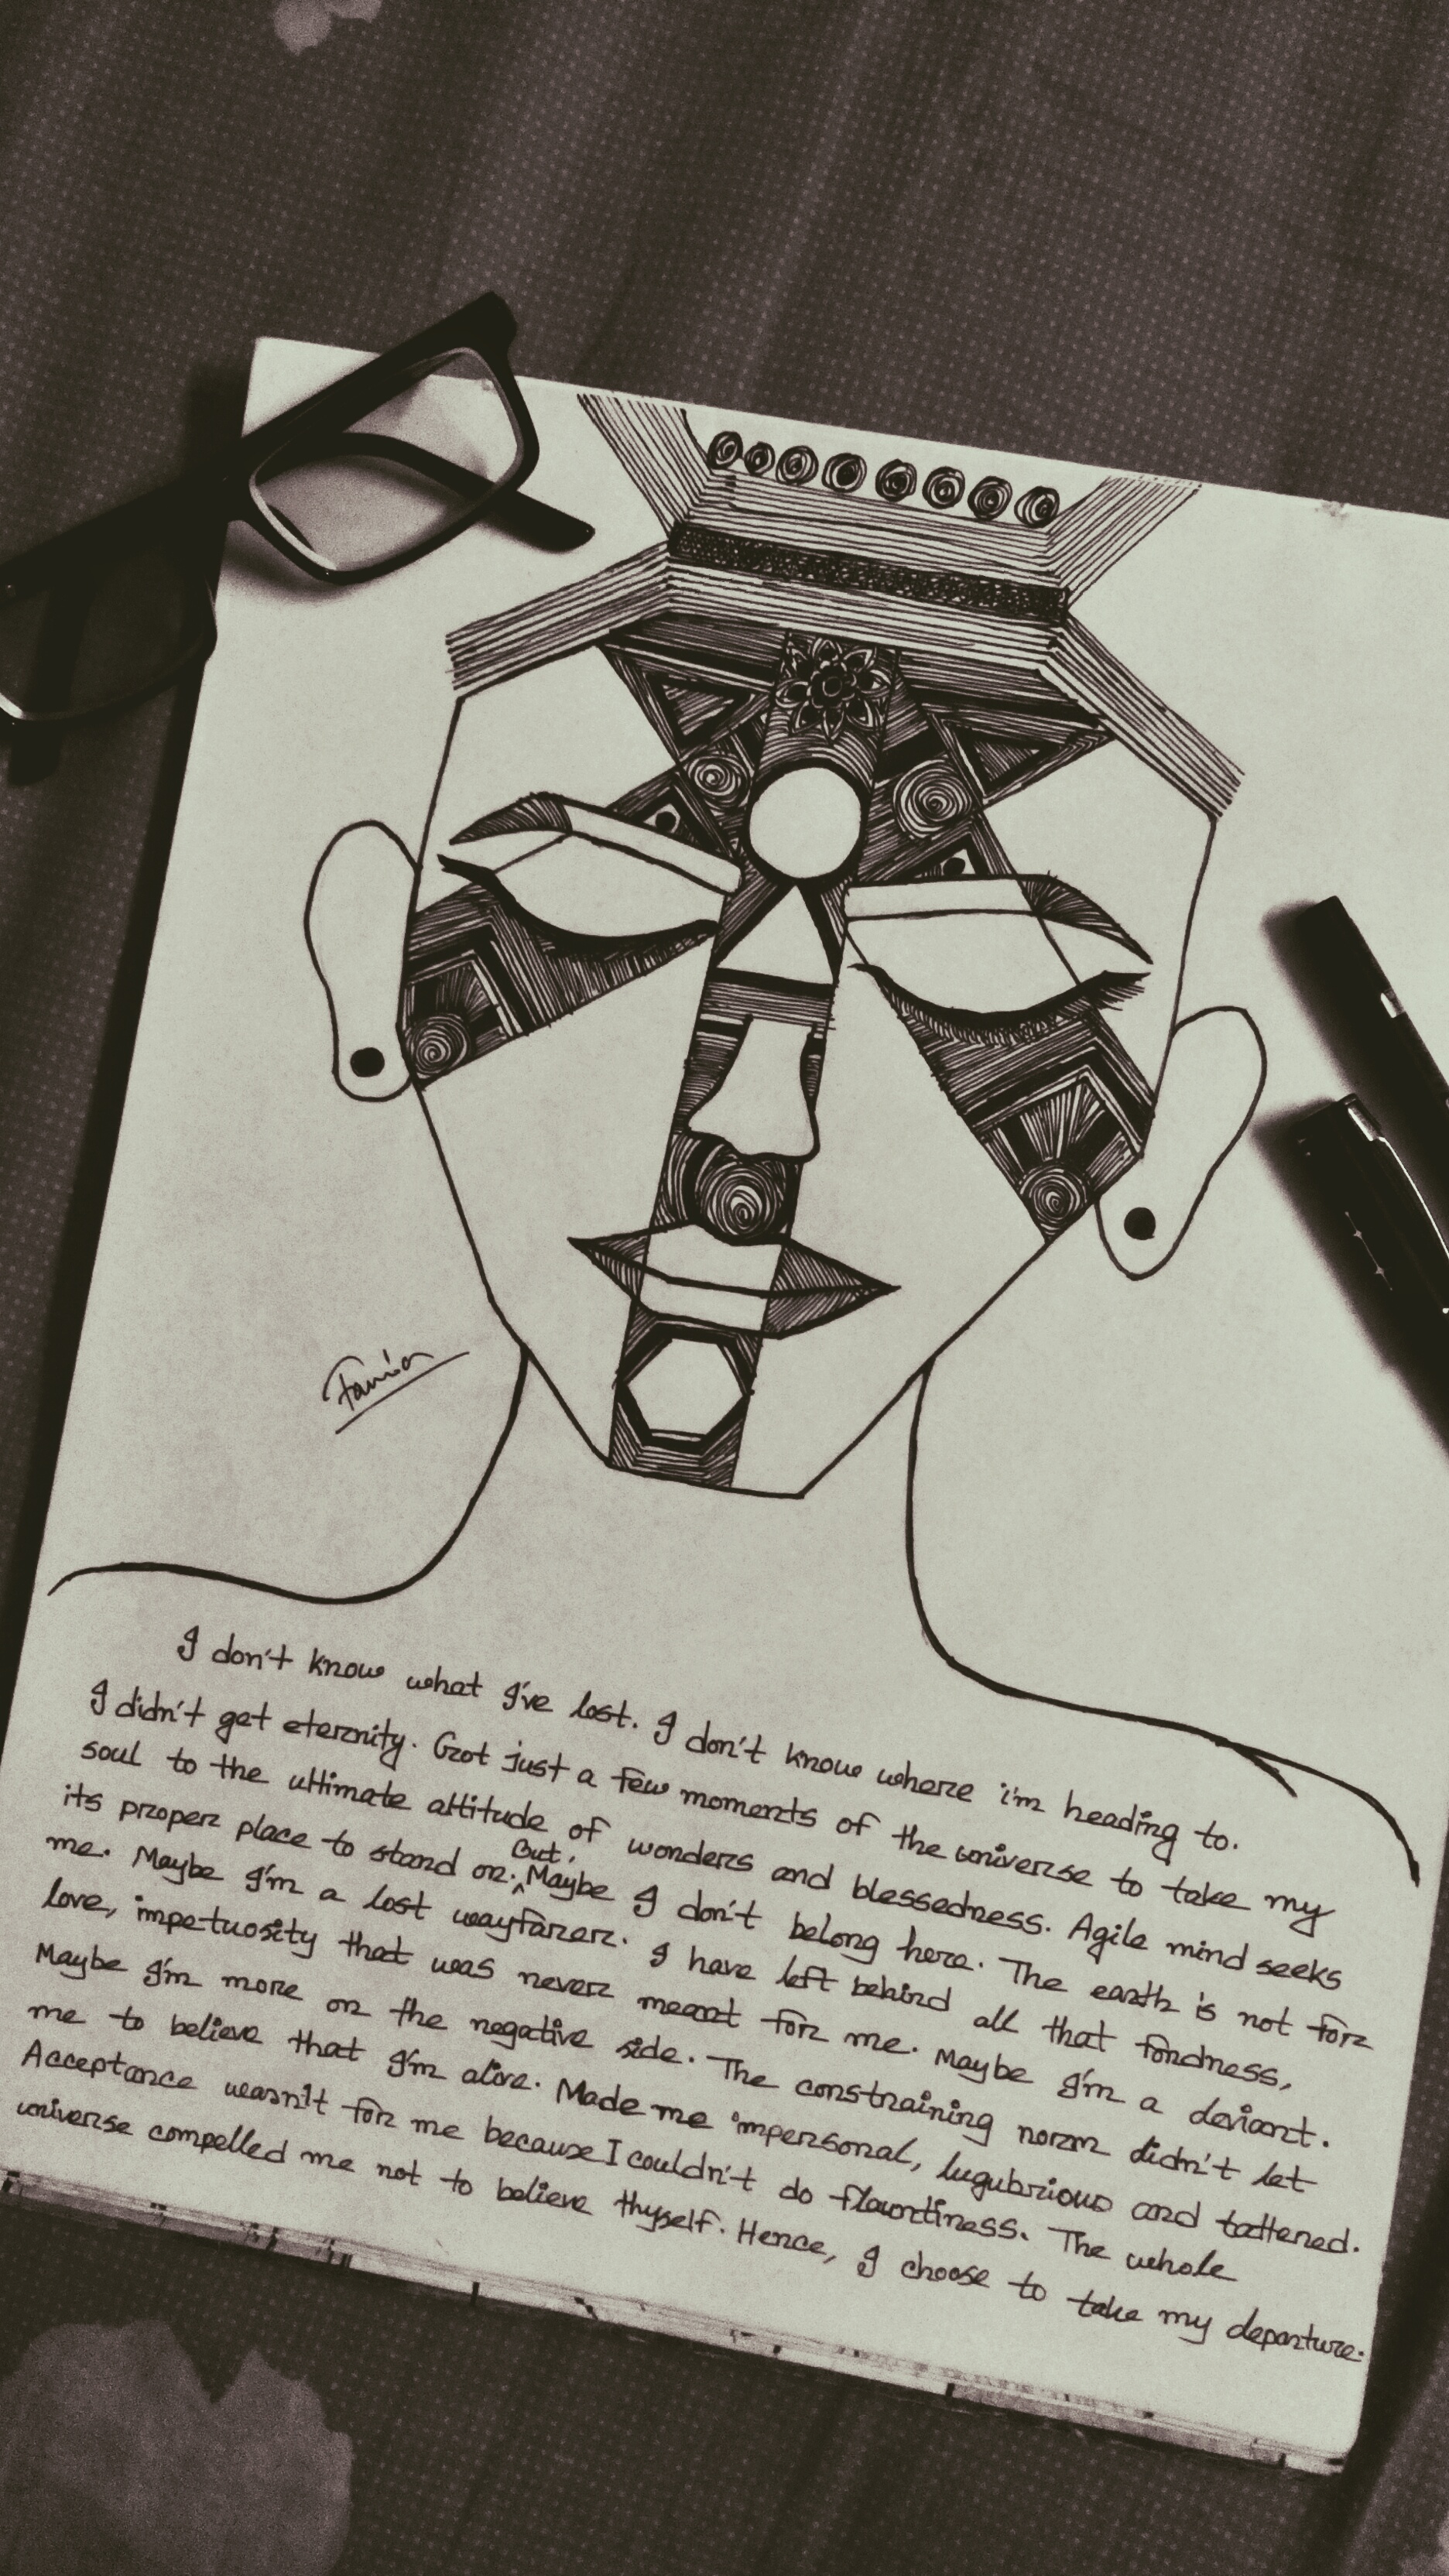 Famia
I don't know what I've lost. I don't know where i'm heading to.
I didn't get eternity. Got just a few moments of the universe to take my
soul to the ultimate attitude of wonders and blessedness. Agile mind seeks
its proper place to stand on. But, Maybe I don't belong here. The earth is not for
me. Maybe I'm a lost wayfarer. I have left behind all that fondness,
love, impetuosity that was never meant for me. Maybe I'm a deviant.
Maybe I'm more on the negative side. The constraining norm didn't let
me to believe that I'm alive. Made me impersonal, lugubrious and tattered.
Acceptance wasn't for me because I couldn't do flauntiness. The whole
universe compelled me not to believe thyself. Hence, I choose to take my departure.